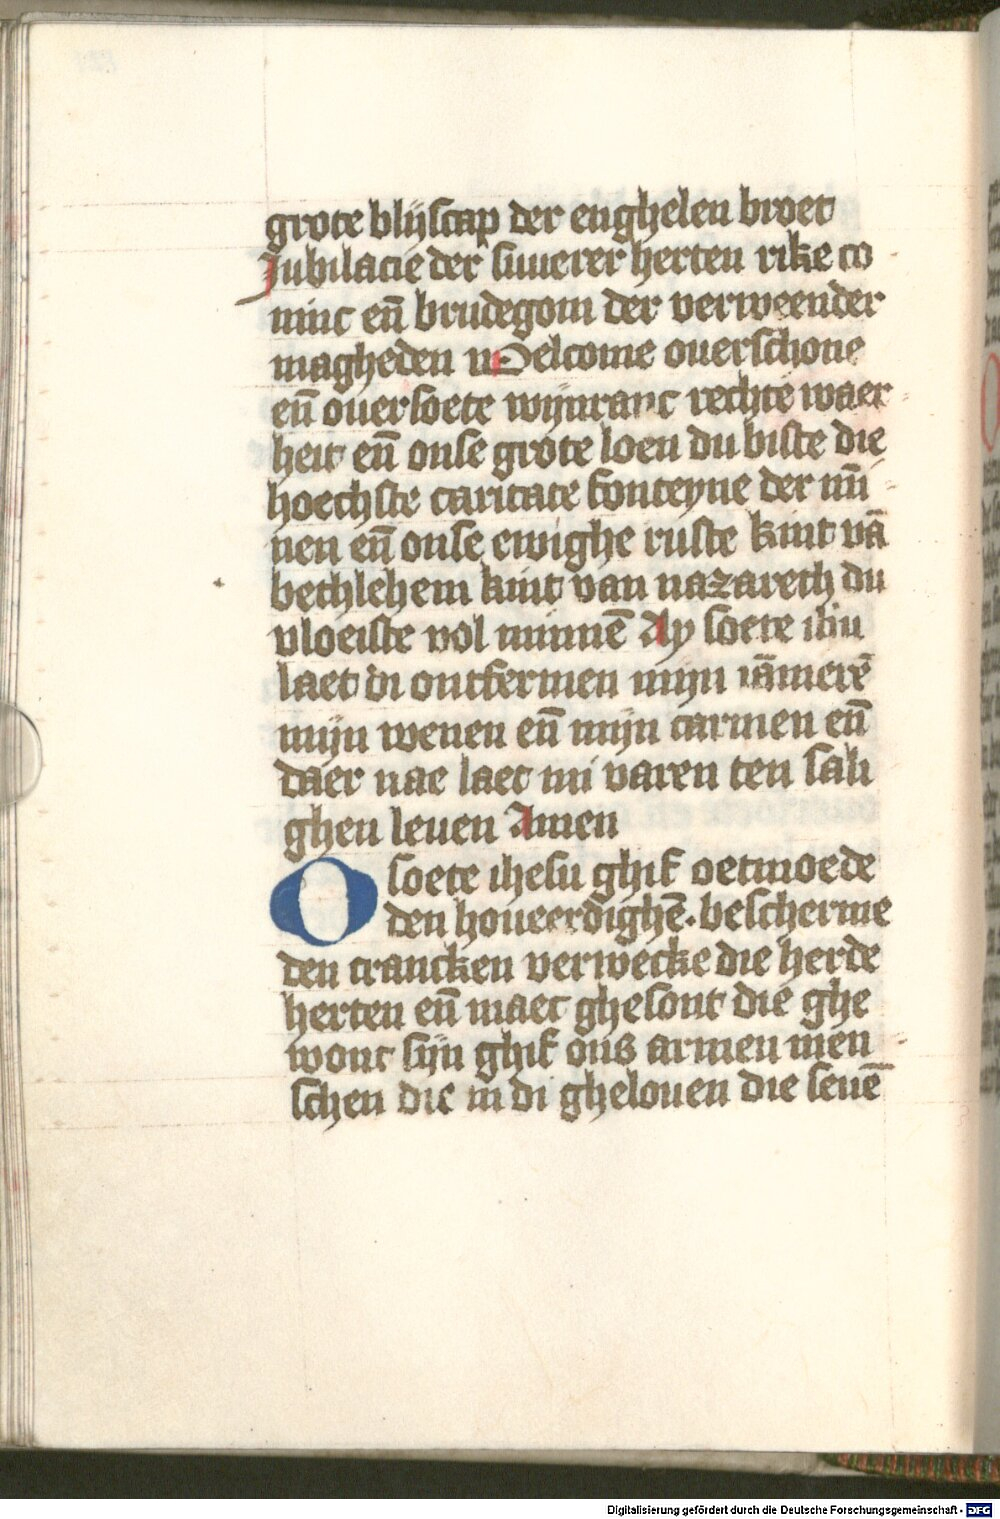 grote blijscap der enghelen broet
Jubilacie der suuerer herten rike co
ninc en̄ brudegom der verweender
magheden wOelcome ouerschone
en̄ ouersoete wijnranc rechte waer
heit en̄ onse grote loen du biste die
hoechste caritate fonteyne der mī
nen en̄ onse ewighe ruste kint vā
bethlehem kint van nazareth du
vloeiste vol minnē Ay soete ihu
laet di ontfermen mijn iāmerē
mijn wenen en̄ mijn carmen en̄
daer nae laet mi varen ten sali
ghen leuen Amen
O soete ihesu ghif oetmoede
den houeerdighē. bescherme
den crancken verwecke die herde
herten en̄ maec ghesont die ghe
wont sijn ghif ons armen men
schen die in di ghelouen die seuē
Digitalisierung gefördert durch die Deutsche Forschungsgemeinschaft - DFG